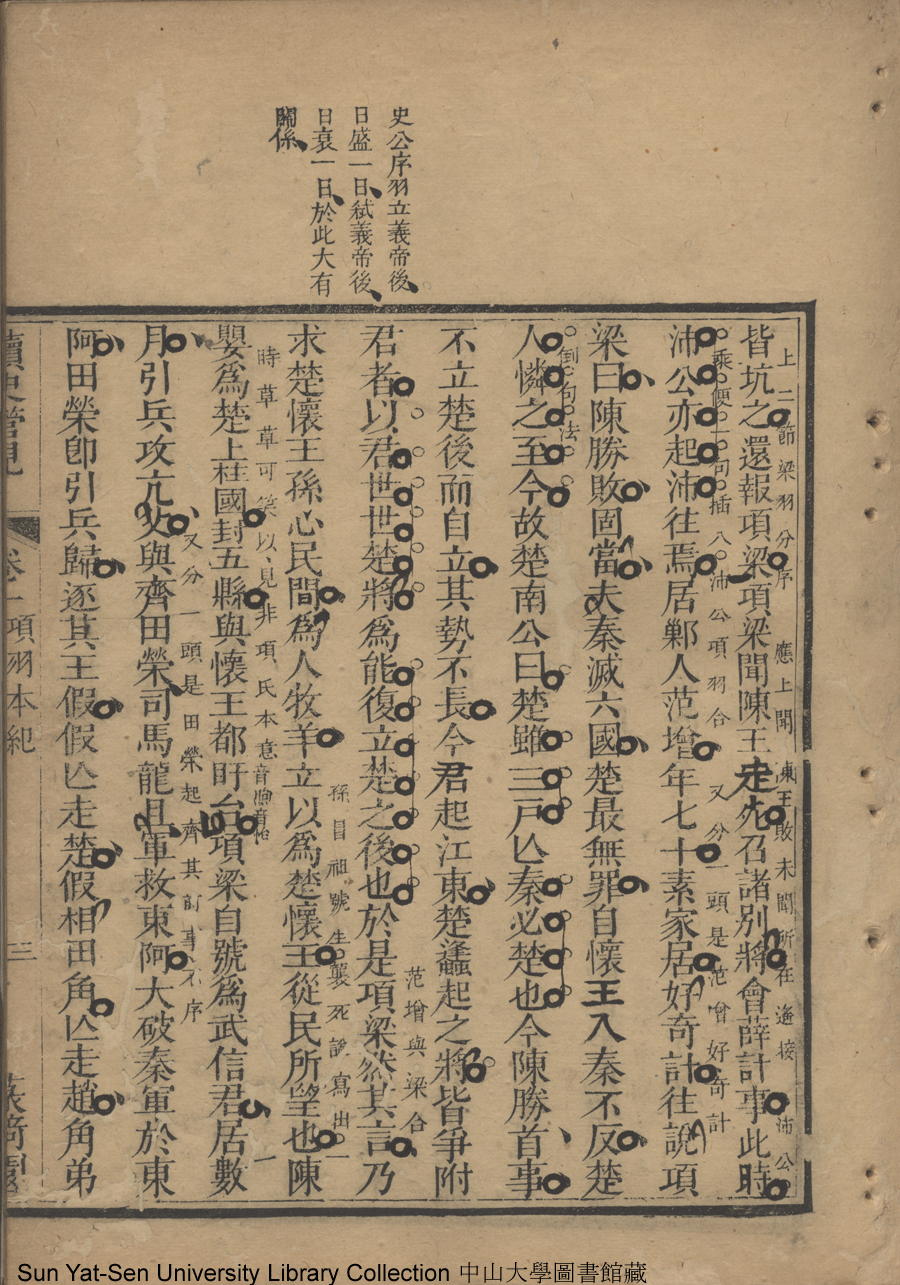 史公序羽立義帝後
日盛一日弒義帝後
日衰一日於此大有
關係
上二節梁羽分序 應上聞 陳王敗未聞所在遙接 沛公
皆坑之還報項梁項梁聞陳王定死召諸別將會薛計事此時
乘便一句插入沛公項羽合 又分一頭是范增好奇計
沛公亦起沛往焉居鄛人范增年七十素家居好奇計往說項
梁曰陳勝敗固當夫秦滅六國楚最無罪自懷王入秦不反楚
倒句法
人憐之至今故楚南公曰楚雖三戶亾秦必楚也今陳勝首事
不立楚後而自立其勢不長今君起江東楚蠭起之將皆爭附
君者以君世世楚將爲能復立楚之後也於是項梁然其言乃
范增與梁合
求楚懷王孫心民間爲人牧羊立以爲楚懷王從民所望也陳
孫冒祖號生襲死諡寫出一
時草草可笑以見非項氏本意 音煦音怡
嬰爲楚上柱國封五縣與懷王都盱台項梁自號爲武信君居數
又分一頭是田榮起齊其訂事不序
月引兵攻亢父與齊田榮司馬龍且軍救東阿大破秦軍於東
阿田榮卽引兵歸逐其王假假亾走楚假相田角亾走趙角弟
讀史管見
卷一項羽本紀
三
Sun Yat-Sen University Library Collection 中山大學圖書館藏